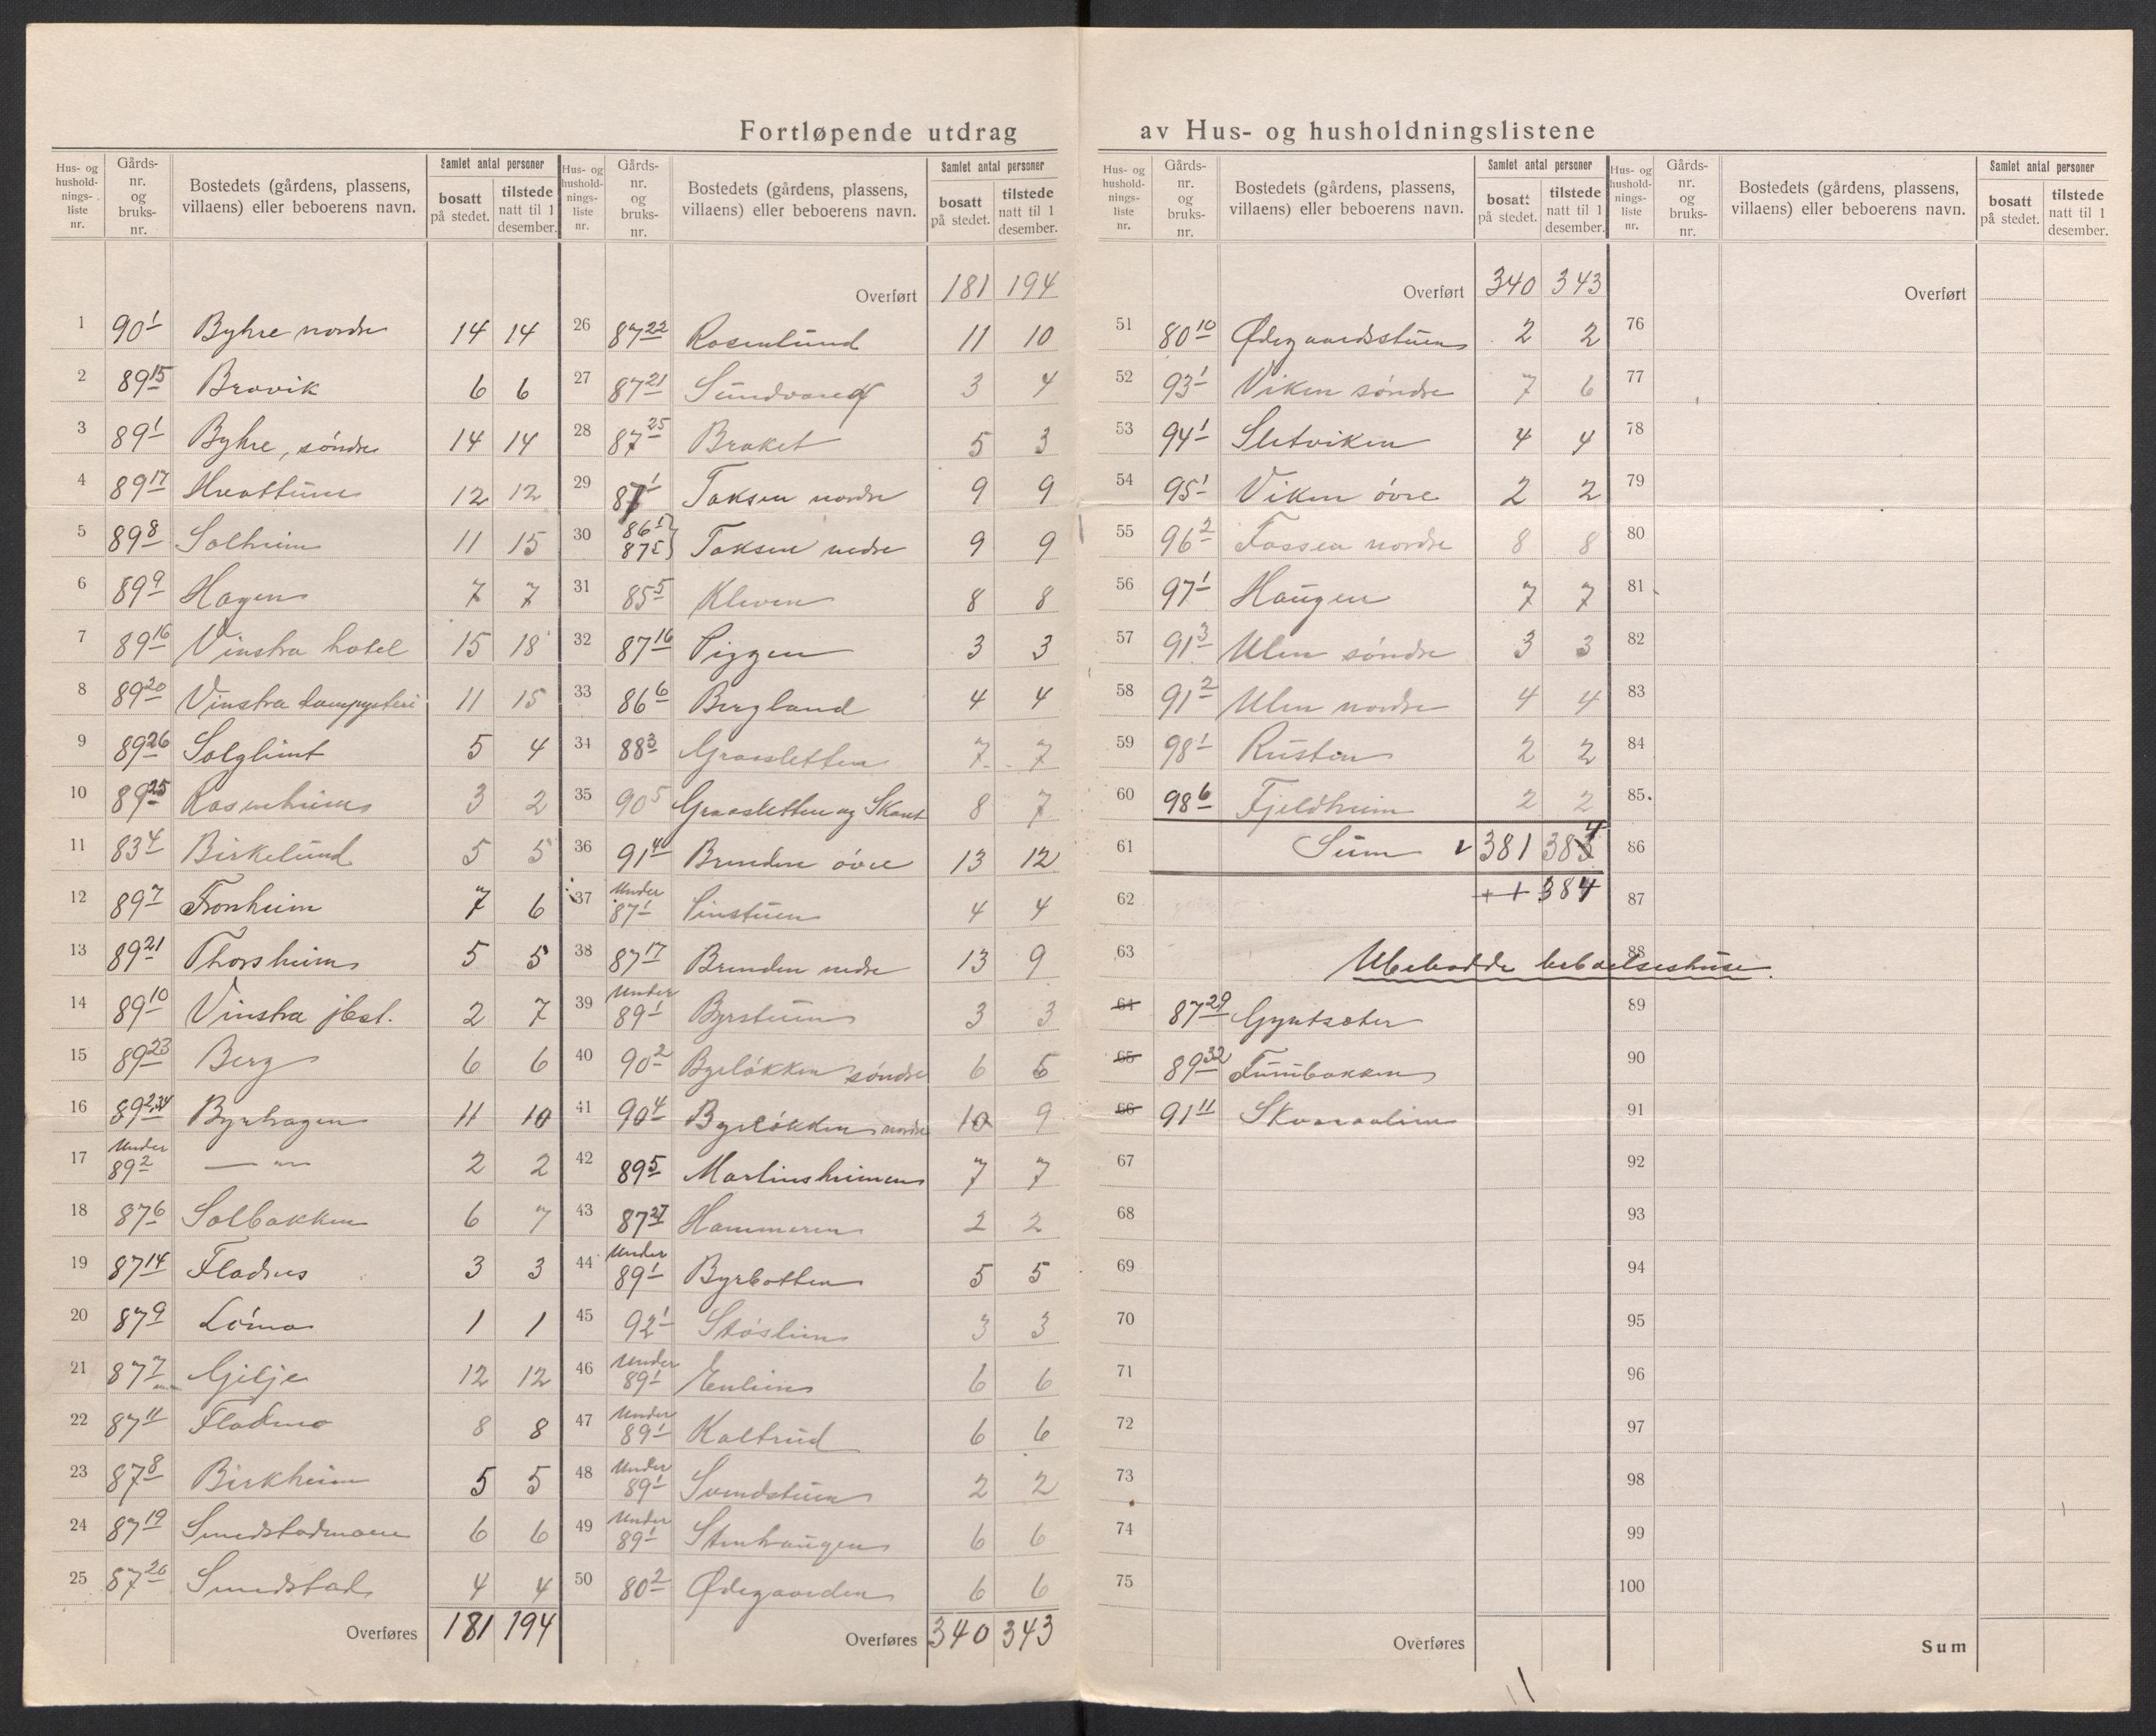 Fortløpende utdrag av Hus- og husholdningslistene
Hus- og hushold- nings- liste nr.
Gårds- nr. og bruks- nr.
Bostedets (gårdens, plassens, villaens) eller beboerens navn.
Samlet antal personer
bosatt på stedet.
tilstede natt til 1 desember.
1 90 1 Byhre nordre 14 14
2 89 15 Bravik 6 6
3 89 1 Byhre, søndre 14 14
4 89 17 Hvattum 12 12
5 89 8 Solheim 11 15
6 89 9 Hagen 7 7
7 89 16 Vinstra hotel 15 18
8 89 20 Vinstra dampysteri 11 15
9 89 26 Solglimt 5 4
10 89 25 Rosenheim 3 2
11 83 4 Birkelund 5 5
12 89 7 Fronheim 7 6
13 89 21 Thorsheim 5 5
14 89 10 Vinstra jbst. 2 7
15 89 23 Berg 6 6
16 89 2,34 Byrhagen 11 10
17 Under 89 2 — " — 2 2
18 87 6 Solbakken 6 7
19 87 14 Fladhus 3 3
20 87 9 Lømo 1 1
21 87 7 Gilje 12 12
22 87 11 Fladmo 8 8
23 87 8 Birkheim 5 5
24 87 19 Sundstadmoen 6 6
25 87 26 Sundstad 4 4
Overføres 181 194
Hus- og hushold- nings- liste nr.
Gårds- nr. og bruks- nr.
Bostedets (gårdens, plassens, villaens) eller beboerens navn.
Samlet antal personer
bosatt på stedet.
tilstede natt til 1 desember.
Overført 181 194
26 87 22 Rosenlund 11 10
27 87 21 Sundvang 3 4
28 87 25 Braket 5 3
29 87 1 Taksen nordre 9 9
30 86 1 87 5 } Taksen nedre 9 9
31 85 5 Kleven 8 8
32 87 16 Piggen 3 3
33 86 6 Bergland 4 4
34 88 3 Graasletten 7 7
35 90 5 Graasletten og Skant 8 7
36 91 4 Brenden øvre 13 12
37 Under 87 1 Linstuen 4 4
38 87 17 Brenden nedre 13 9
39 Under 89 1 Byrstuen 3 3
40 90 2 Byrløkken søndre 6 6
41 90 4 Byrløkken nordre 10 9
42 89 5 Martinsheimen 7 7
43 87 27 Hammeren 2 2
44 Under 89 1 Byrbotten 5 5
45 92 1 Støslien 3 3
46 Under 89 1 Enlien 6 6
47 Under 89 1 Kaltrud 6 6
48 Under 89 1 Svendstuen 2 2
49 Under 89 1 Stenhaugen 6 6
50 80 2 Ødegaarden 6 6
Overføres 340 343
Hus- og hushold- nings- liste nr.
Gårds- nr. og bruks- nr.
Bostedets (gårdens, plassens, villaens) eller beboerens navn.
Samlet antal personer
bosatt på stedet.
tilstede natt til 1 desember.
Overført 340 343
51 80 10 Ødegaardsstuen 2 2
52 93 1 Viken søndre 7 6
53 94 1 Sletviken 4 4
54 95 1 Viken øvre 2 2
55 96 2 Fossen nordre 8 8
56 97 1 Haugen 7 7
57 91 3 Ulen søndre 3 3
58 91 2 Ulen nordre 4 4
59 98 1 Rusten 2 2
60 98 6 Fjeldheim 2 2
61 Sum 381 384
62 + + 384
63 Ubebodde beboelseshuse.
64 87 29 Gyntsæter
65 89 32 Furubakken
66 91 11 Skvaraalien
67
68
69
70
71
72
73
74
75
Overføres
Hus- og hushold- nings- liste nr.
Gårds- nr. og bruks- nr.
Bostedets (gårdens, plassens, villaens) eller beboerens navn.
Samlet antal personer
bosatt på stedet.
tilstede natt til 1 desember.
Overført
76
77
78
79
80
81
82
83
84
85
86
87
88
89
90
91
92
93
94
95
96
97
98
99
100
Sum